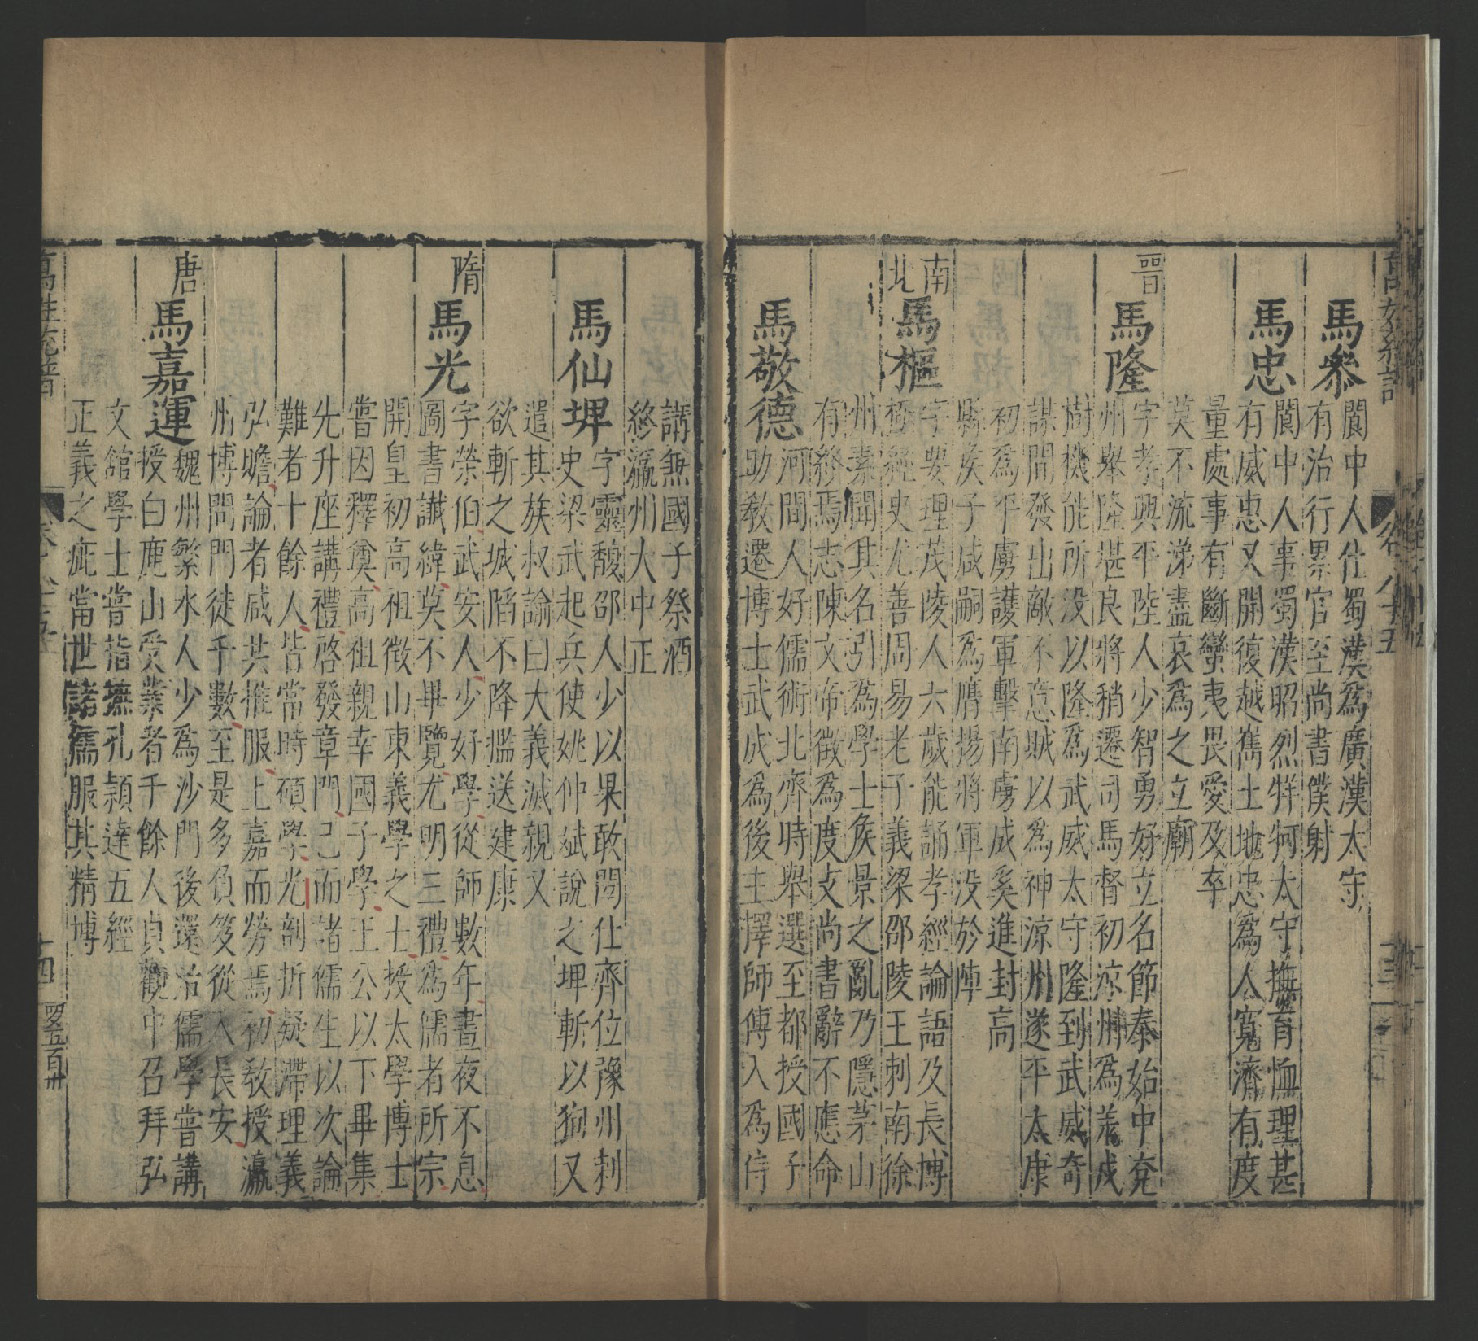 馬叅閬中人仕蜀漢爲廣漢太守
有治行累官至尚書僕射
馬忠閬中人事蜀漢昭烈牂牁太守撫育恤理甚
有威惠又開復越雟土地忠爲人寬濟有度
量處事有斷蠻夷畏愛及卒
莫不流涕盡哀爲之立廟
晋
馬隆字孝興平陸人少智勇好立名節泰始中兗
州舉隆堪良將稍遷司馬督初涼州爲羌戎
樹機能所没以隆爲武威太守隆到武威奇
謀間發出敵不意賊以爲神涼州遂平太康
初爲平虜護軍擊南虜成奚進封高
縣侯子咸嗣爲鷹揚將軍没於陣
南北
馬樞字要理茂陵人六歲能誦孝經論語及長博
極經史尤善周易老子義梁邵陵王刺南徐
州素聞其名引爲學士侯景之亂乃隱茅山
有終焉志陳文帝徵爲度支尚書辭不應命
馬敬德河間人好儒術北齊時舉選至都授國子
助教遷博士武成爲後主擇師傅入爲侍
講無國子祭酒
終瀛州大中正
馬仙埤字靈馥邵人少以果敢聞仕齊位豫州刺
史梁武起兵使姚仲斌說之埤斬以狥又
遣其族叔諭曰大義滅親又
欲斬之城陷不降檻送建康
隋
馬光字榮伯武安人少好學從師數年晝夜不息
圖書讖緯莫不畢覽尤明三禮爲儒者所宗
開皇初高祖徵山東義學之士授太學博士
嘗因釋奠高祖親幸國子學王公以下畢集
先升座講禮啓發章門已而諸儒生以次論
難者十餘人皆當時碩學光剖折疑滯理義
弘贍論者咸共推服上嘉而勞焉初教授瀛
州博間門徒千數至是多負笈從入長安
唐
馬嘉運魏州繁水人少爲沙門後還治儒學嘗講
授白鹿山受業者千餘人貞觀中召拜弘
文舘學士嘗指摭孔頴達五經
正義之疵當世諸儒服其精博